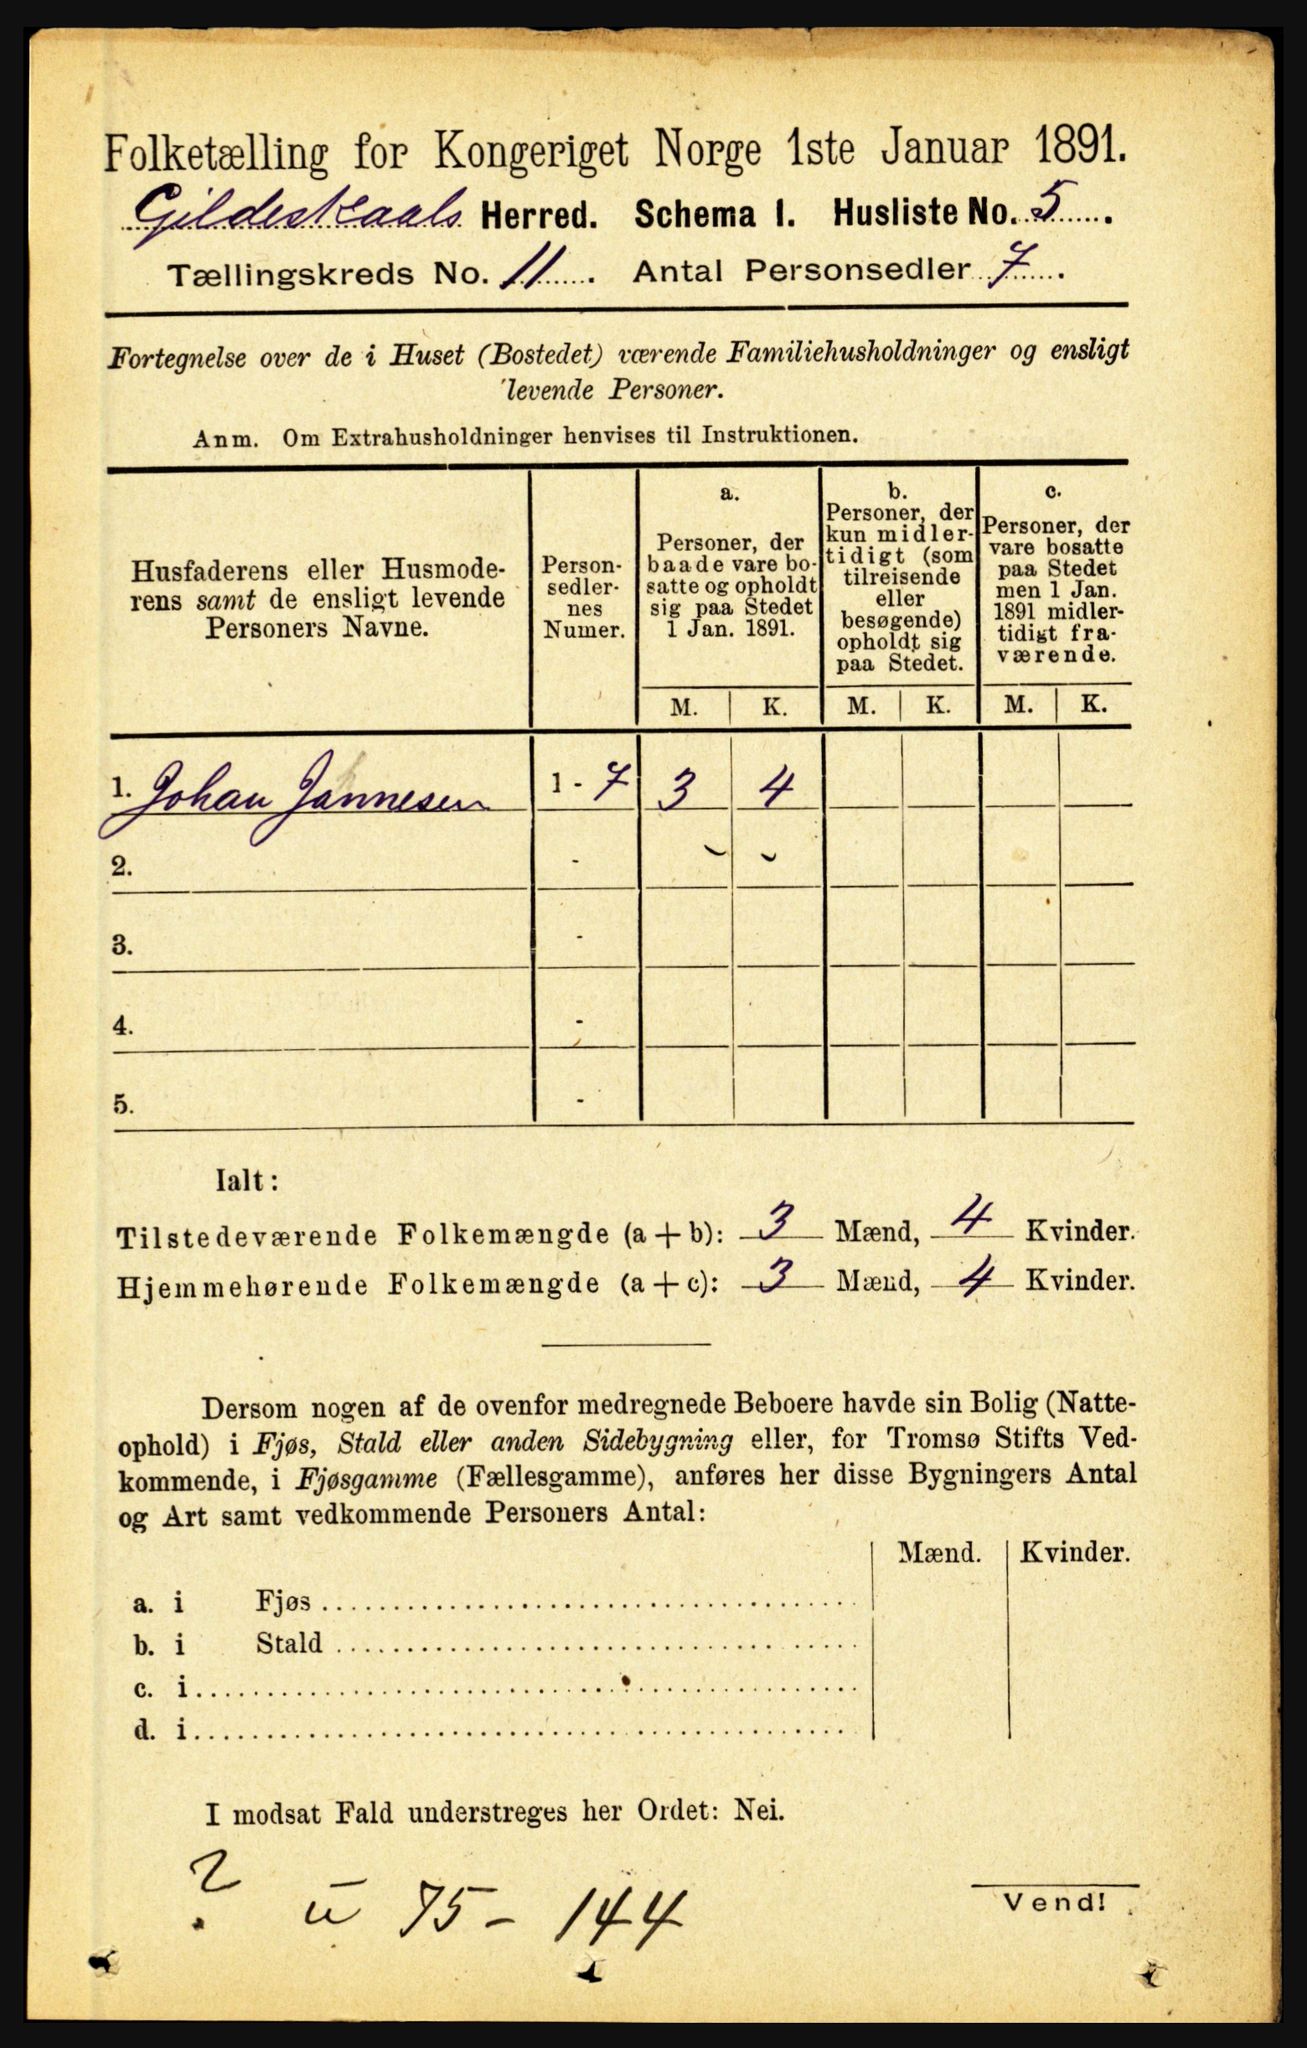 Folketælling for Kongeriget Norge 1ste Januar 1891.
Gildeskaals Herred. Schema I. Husliste No. 5.
Tællingskreds No. 11. Antal Personsedler 7.
Fortegnelse over de i Huset (Bostedet) værende Familiehusholdninger og ensligt
levende Personer.
Anm. Om Extrahusholdninger henvises til Instruktionen.
Husfaderens eller Husmode-
rens samt de ensligt levende
Personers Navne.
Person-
sedler-
nes
Numer.
a.
Personer, der
baade vare bo-
satte og opholdt
sig paa Stedet
1 Jan. 1891.
b.
Personer, der
kun midler-
tidigt (som
tilreisende
eller
besøgende)
opholdt sig
paa Stedet.
c.
Personer, der
vare bosatte
paa Stedet
men 1 Jan.
1891 midler-
tidigt fra-
værende.
M. K. M. K. M. K.
1. Johan Jannesen 1 - 7 3 4
2. -
3. -
4. -
5. -
Ialt:
Tilstedeværende Folkemængde (a + b): 3 Mænd, 4 Kvinder.
Hjemmehørende Folkemængde (a + c): 3 Mænd, 4 Kvinder.
Dersom nogen af de ovenfor medregnede Beboere havde sin Bolig (Natte-
ophold) i Fjøs, Stald eller anden Sidebygning eller, for Tromsø Stifts Ved-
kommende, i Fjøsgamme (Fællesgamme), anføres her disse Bygningers Antal
og Art samt vedkommende Personers Antal:
Mænd. Kvinder.
a. i Fjøs
b. i Stald
c. i
d. i
I modsat Fald understreges her Ordet: Nei.
? u 75 - 144
Vend!